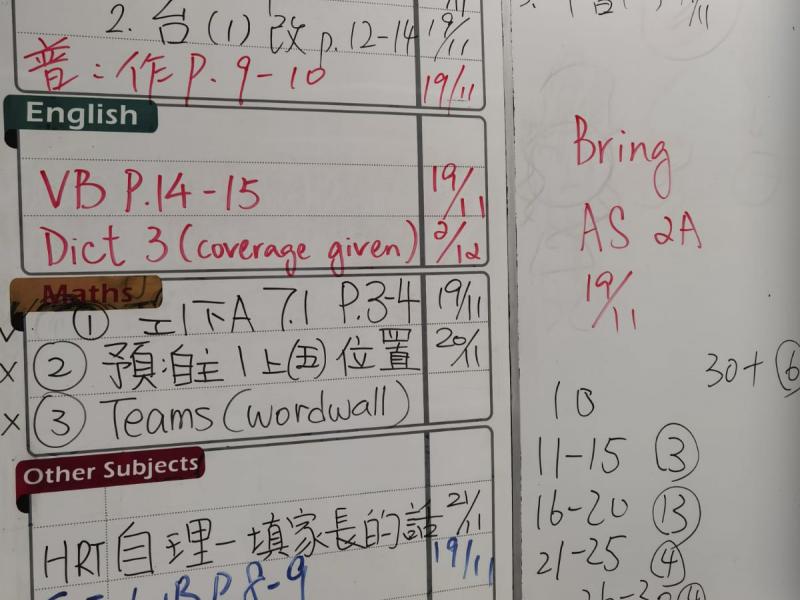 2. 台(1) 改 p.12-14 19/11
普:作P.9-10 19/11
English
VB P.14-15 19/11
Dict 3 (coverage given) 2/12
Maths
① 工1下A 7.1 P.3-4 19/11
② 預:自主1上(五)位置 20/11
③ Teams (wordwall)
Other Subjects
HRT 自理-填家長的話 21/11
P.8-9 19/11
Bring
AS 2A
19/11
30+ ⑥
10
11-15 ③
16-20 ⑬
21-25 ④
26-30